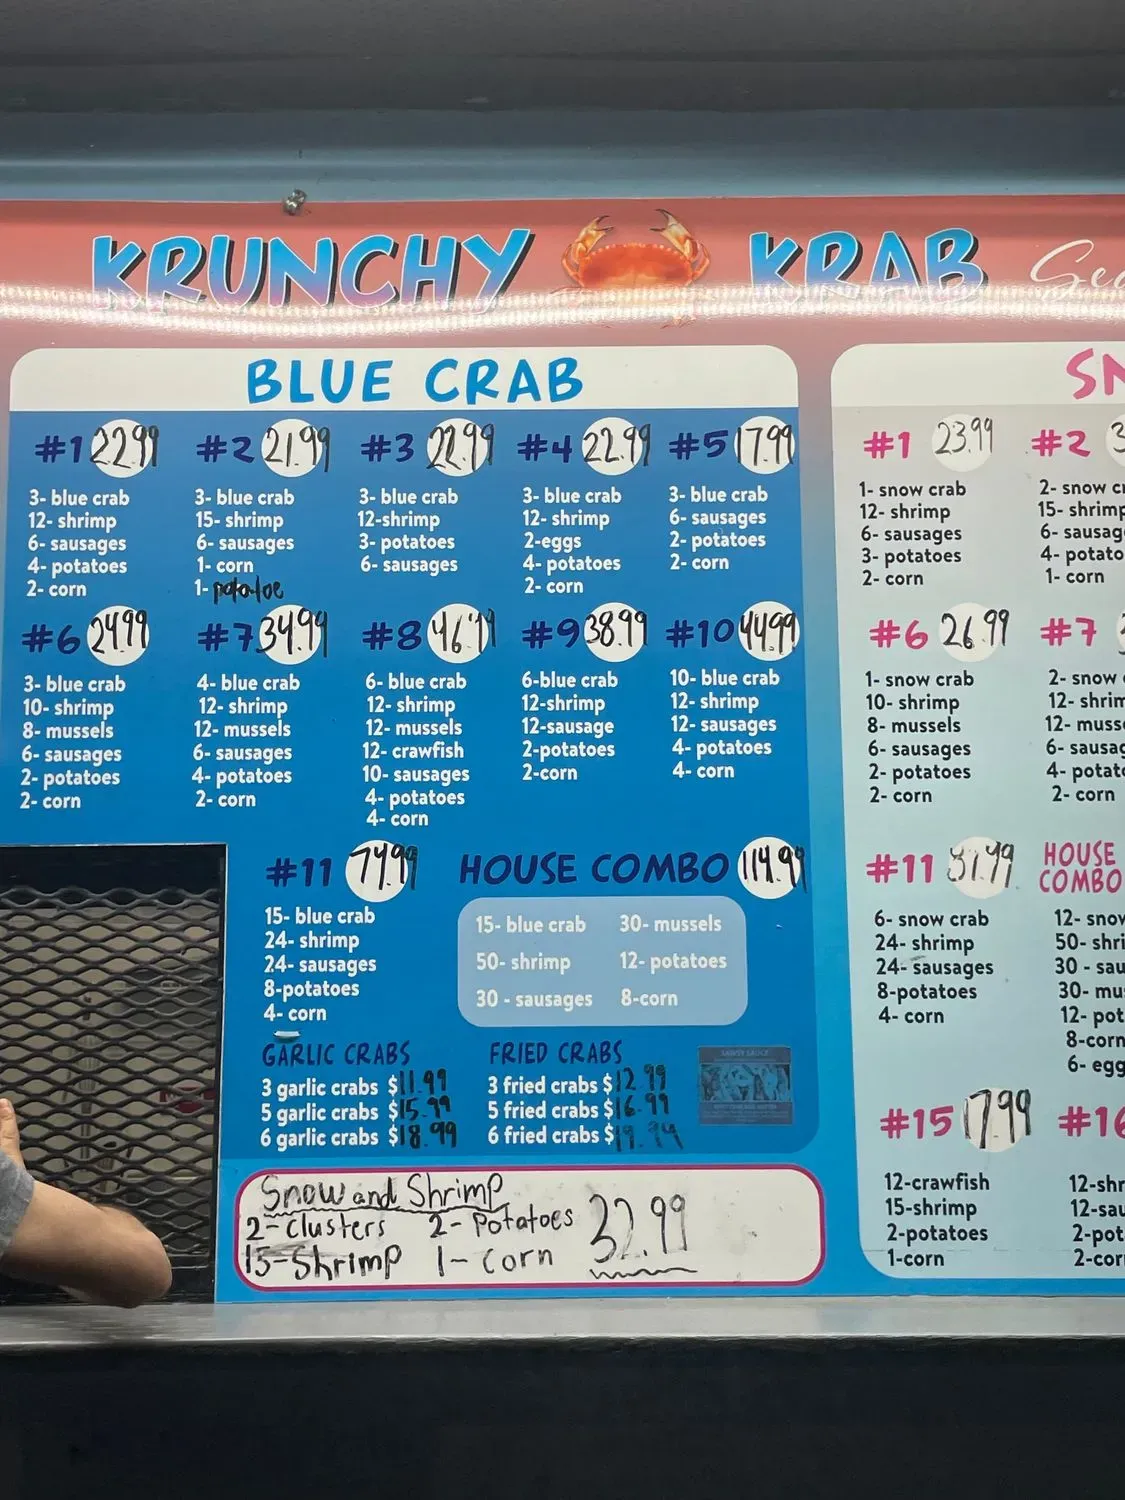 KRUNCHY KRAB
BLUE CRAB
#1 22.99
3- blue crab
12- shrimp
6- sausages
4- potatoes
2- corn
#2 21.99
3- blue crab
15- shrimp
6- sausages
1- corn
1- potatoe
#3 22.99
3- blue crab
12-shrimp
3- potatoes
6- sausages
#4 22.99
3- blue crab
12- shrimp
2-eggs
4- potatoes
2- corn
#5 17.99
3- blue crab
6- sausages
2- potatoes
2- corn
#6 24.99
3- blue crab
10- shrimp
8- mussels
6- sausages
2- potatoes
2- corn
#7 34.99
4- blue crab
12- shrimp
12- mussels
6- sausages
4- potatoes
2- corn
#8 46.99
6- blue crab
12- shrimp
12- mussels
12- crawfish
10- sausages
4- potatoes
4- corn
#9 38.99
6-blue crab
12-shrimp
12-sausage
2-potatoes
2-corn
#10 44.99
10- blue crab
12- shrimp
12- sausages
4- potatoes
4- corn
#11 74.99
15- blue crab
24- shrimp
24- sausages
8-potatoes
4- corn
HOUSE COMBO 114.99
15- blue crab
50- shrimp
30 - sausages
30- mussels
12- potatoes
8-corn
GARLIC CRABS
3 garlic crabs $11.99
5 garlic crabs $15.99
6 garlic crabs $18.99
FRIED CRABS
3 fried crabs $12.99
5 fried crabs $16.99
6 fried crabs $19.99
Snow and Shrimp
2-Clusters 2-Potatoes
15-Shrimp 1-Corn
32.99
#1 23.99
1- snow crab
12- shrimp
6- sausages
3- potatoes
2- corn
#2
2- snow
15- shrimp
6- sausag
4- potato
1- corn
#6 26.99
1- snow crab
10- shrimp
8- mussels
6- sausages
2- potatoes
2- corn
#7
2- snow
12- shrim
12- muss
6- sausag
4- potat
2- corn
#11
6- snow crab
24- shrimp
24- sausages
8-potatoes
4- corn
HOUSE
COMBO
12- snow
50- shri
30 - sau
30- mu
12- pot
8-corn
6- egg
#15 17.99
12-crawfish
15-shrimp
2-potatoes
1-corn
#16
12-shr
12-sau
2-pot
2-cor